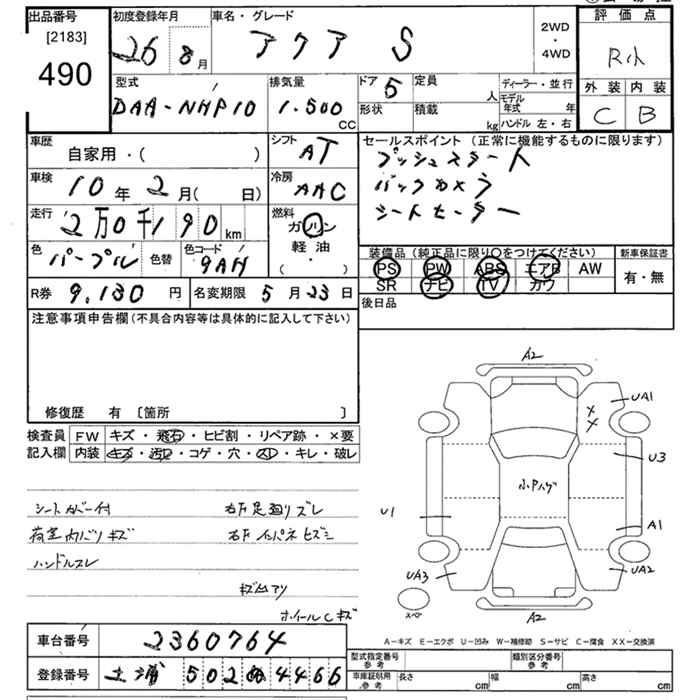 出品番号
[2183]
490
初度登録年月
26 8月
車名・グレード
アクア S
2WD
・
4WD
評価点
R小
外装 内装
C B
型式
DAA-NHP10
排気量
1.500 CC
ドア 5
形状
定員
人
積載
kg
ディーラー・並行
モデル
年式 年
ハンドル 左・右
車歴
自家用・( )
シフト
AT
車検
10年2月( 日)
冷房
AAC
走行
2万0千190km
燃料
ガソリン
軽油
・
( )
色 パープル
色替
色コード
9AH
R券 9,130円
名変期限 5月23日
セールスポイント (正常に機能するものに限ります)
プッシュスタート
バックカメラ
シートヒーター
装備品 (純正品に限り○をつけてください)
PS PW ABS エアB AW
SR ナビ TV カワ
新車保証書
有・無
後日品
注意事項申告欄 (不具合内容等は具体的に記入して下さい)
修復歴 有 [箇所 ]
検査員
記入欄
FW キズ・飛石・ヒビ割・リペア跡・×要
内装 キズ・汚れ・コゲ・穴・スレ・キレ・破レ
シートカバー付
荷室内バリキズ
ハンドルスレ
右F足廻リズレ
右Fインパネヒズミ
キズ凹アリ
ホイールCキズ
A2
UA1
X
X
U3
小Pハゲ
U1
A1
UA3
UA2
スペア
A2
A-キズ E-エクボ U-凹み W-補修跡 S-サビ C-腐食 XX-交換済
車台番号 2360764
登録番号 土浦 502 4466
型式指定番号
参考
類別区分番号
参考
車庫証明用
参考
長さ cm
幅 cm
高さ cm